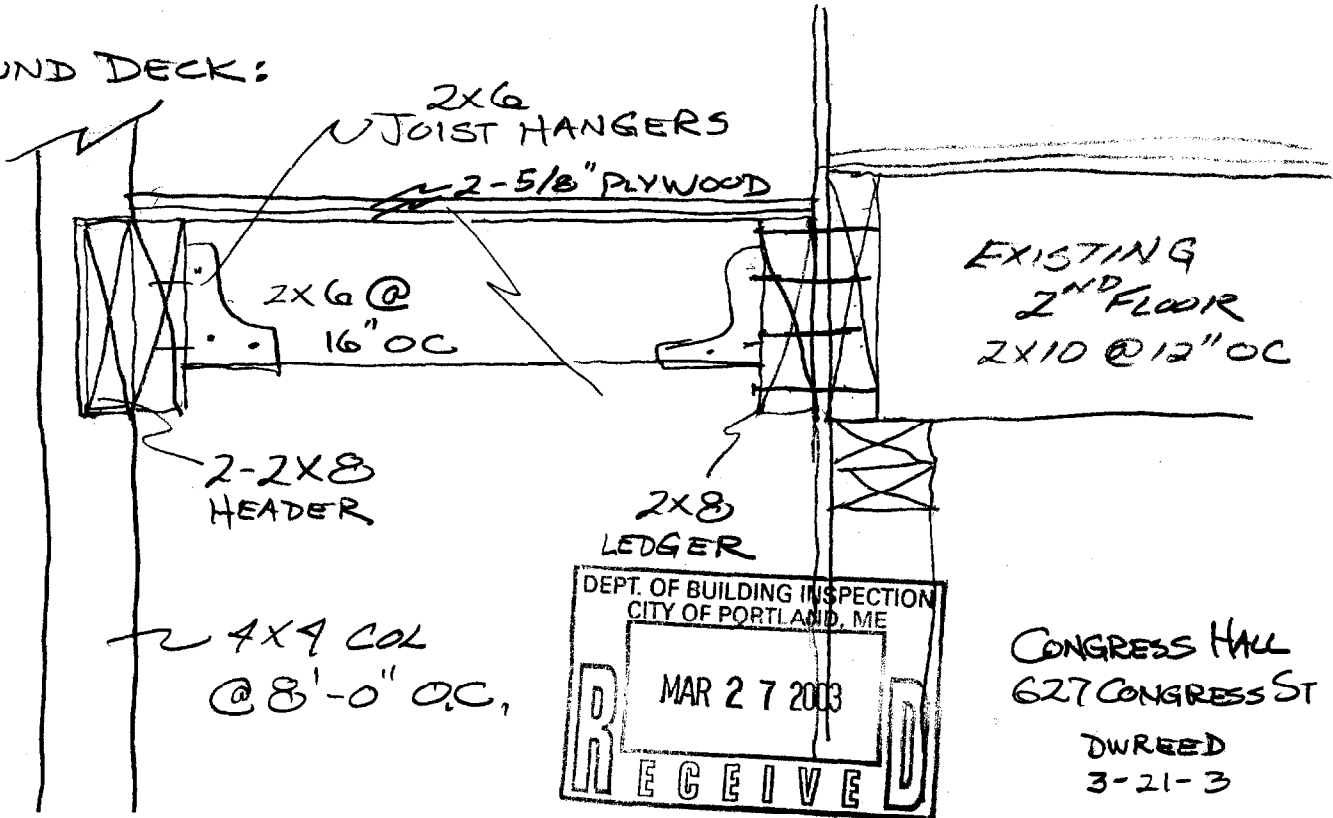 UND DECK:
2X6
JOIST HANGERS
2-5/8" PLYWOOD
2X6 @
16" OC
EXISTING
2ND FLOOR
2X10 @ 12" OC
2-2X8
HEADER
2X8
LEDGER
4X4 COL
@ 8'-0" O.C.
DEPT. OF BUILDING INSPECTION
CITY OF PORTLAND, ME
MAR 27 2003
RECEIVED
CONGRESS HALL
627 CONGRESS ST
DWREED
3-21-3